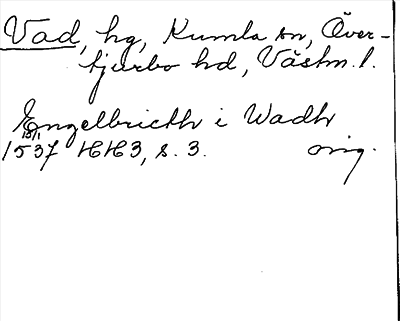 Vad, hg, Kumla sn, Över-
tjurbo hd, Västm. l.
Engelbricth i Wadh
15/1
1537 HH3, s. 3. orig.